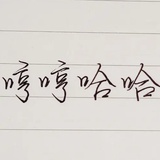 哼哼哈哈